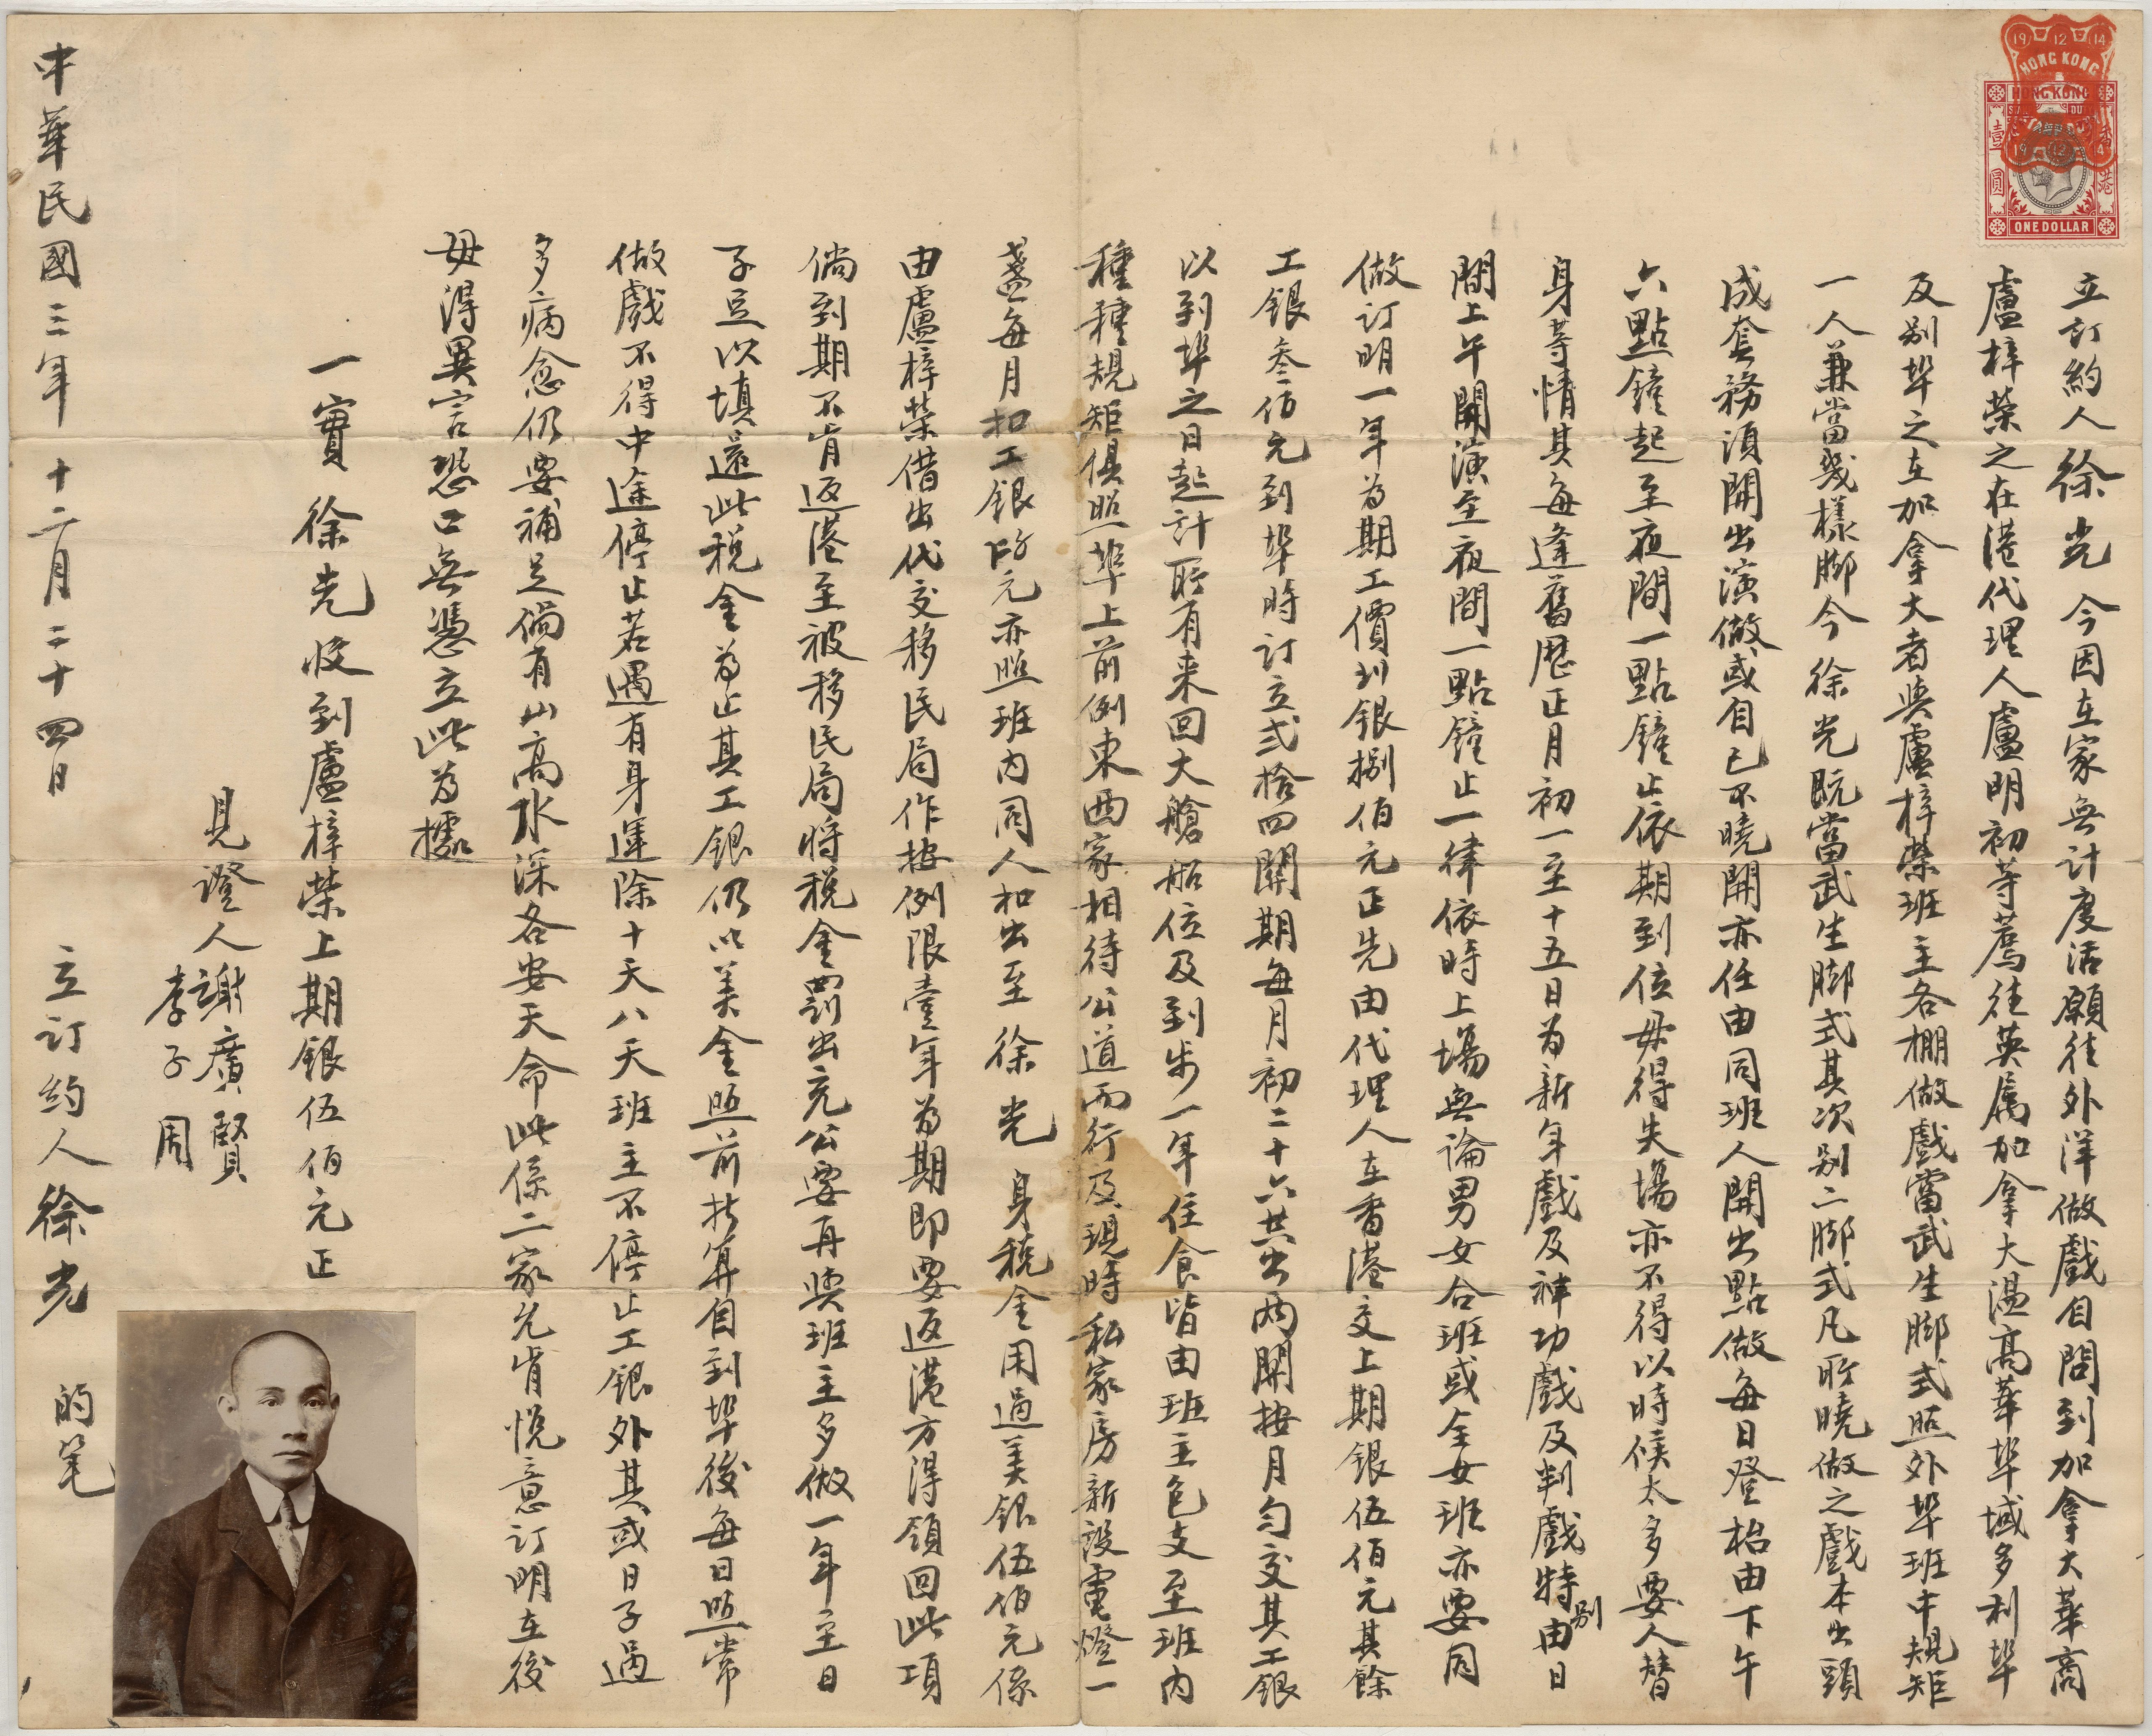 19 12 14
HONG KONG
HONG KONG
壹圓
香港
ONE DOLLAR
立訂約人徐光 今因在家無計度活願往外洋做戲自問到加拿大華商
盧梓榮之在港代理人盧明初等薦往英属加拿大温高華埠域多利埠
及别埠之在加拿大者與盧梓榮班主各棚做戲當武生脚式照外埠班中規矩
一人兼當幾樣脚今 徐光既當武生脚式其次别二脚式凡所曉做之戲本出頭
成套務須開出演做或自已不曉開亦任由同班人開出點做每日登枱由下午
六點鐘起至夜間一點鐘止依期到位毋得失場亦不得以時候太多要人替
身等情其每逢舊歷正月初一至十五日為新年戲及神功戲及判戲特别由日
間上午開演至夜間一點鐘止一律依時上場無論男女合班或全女班亦要同
做訂明一年為期工價刘銀捌佰元正先由代理人在香港交上期銀伍佰元其餘
工銀叁佰元到埠時訂立弍拾四關期每月初二十六共出两關按月勻交其工銀
以到埠之日起計所有来回大艙船位及到步一年住食皆由班主包支至班内
種種規矩俱照埠上前例東西家相待公道而行及現時私家房新設電燈一
盞每月扣工銀 元亦照班内同人扣出至 徐 光 身税金用過美銀伍佰元係
由盧梓榮借出代交移民局作按例限壹年為期即要返港方得領回此項
倘到期不肯返港至被移民局將税金罰出充公要再與班主多做一年至日
子足以填還此税金為止其工銀仍以美金照前扸算自到埠後每日照常
做戲不得中途停止若遇有身運除十天八天班主不停止工銀外其或日子過
多病愈仍要補足倘有山高水深各安天命此係二家允肯悦意訂明在後
毋得異言恐口無憑立此為據
一實 徐光收到盧梓榮上期銀伍佰元正
見證人謝廣賢
李子周
中華民國三年十二月二十四日 立訂約人徐光 的笔